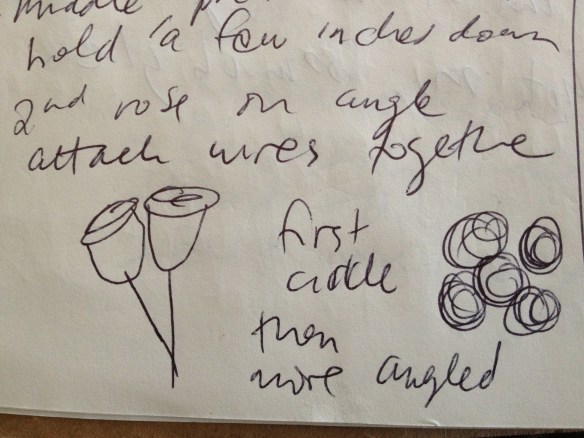 middle
hold a few inches down
2nd rose on angle
attach wires together
first
circle
then
more angled